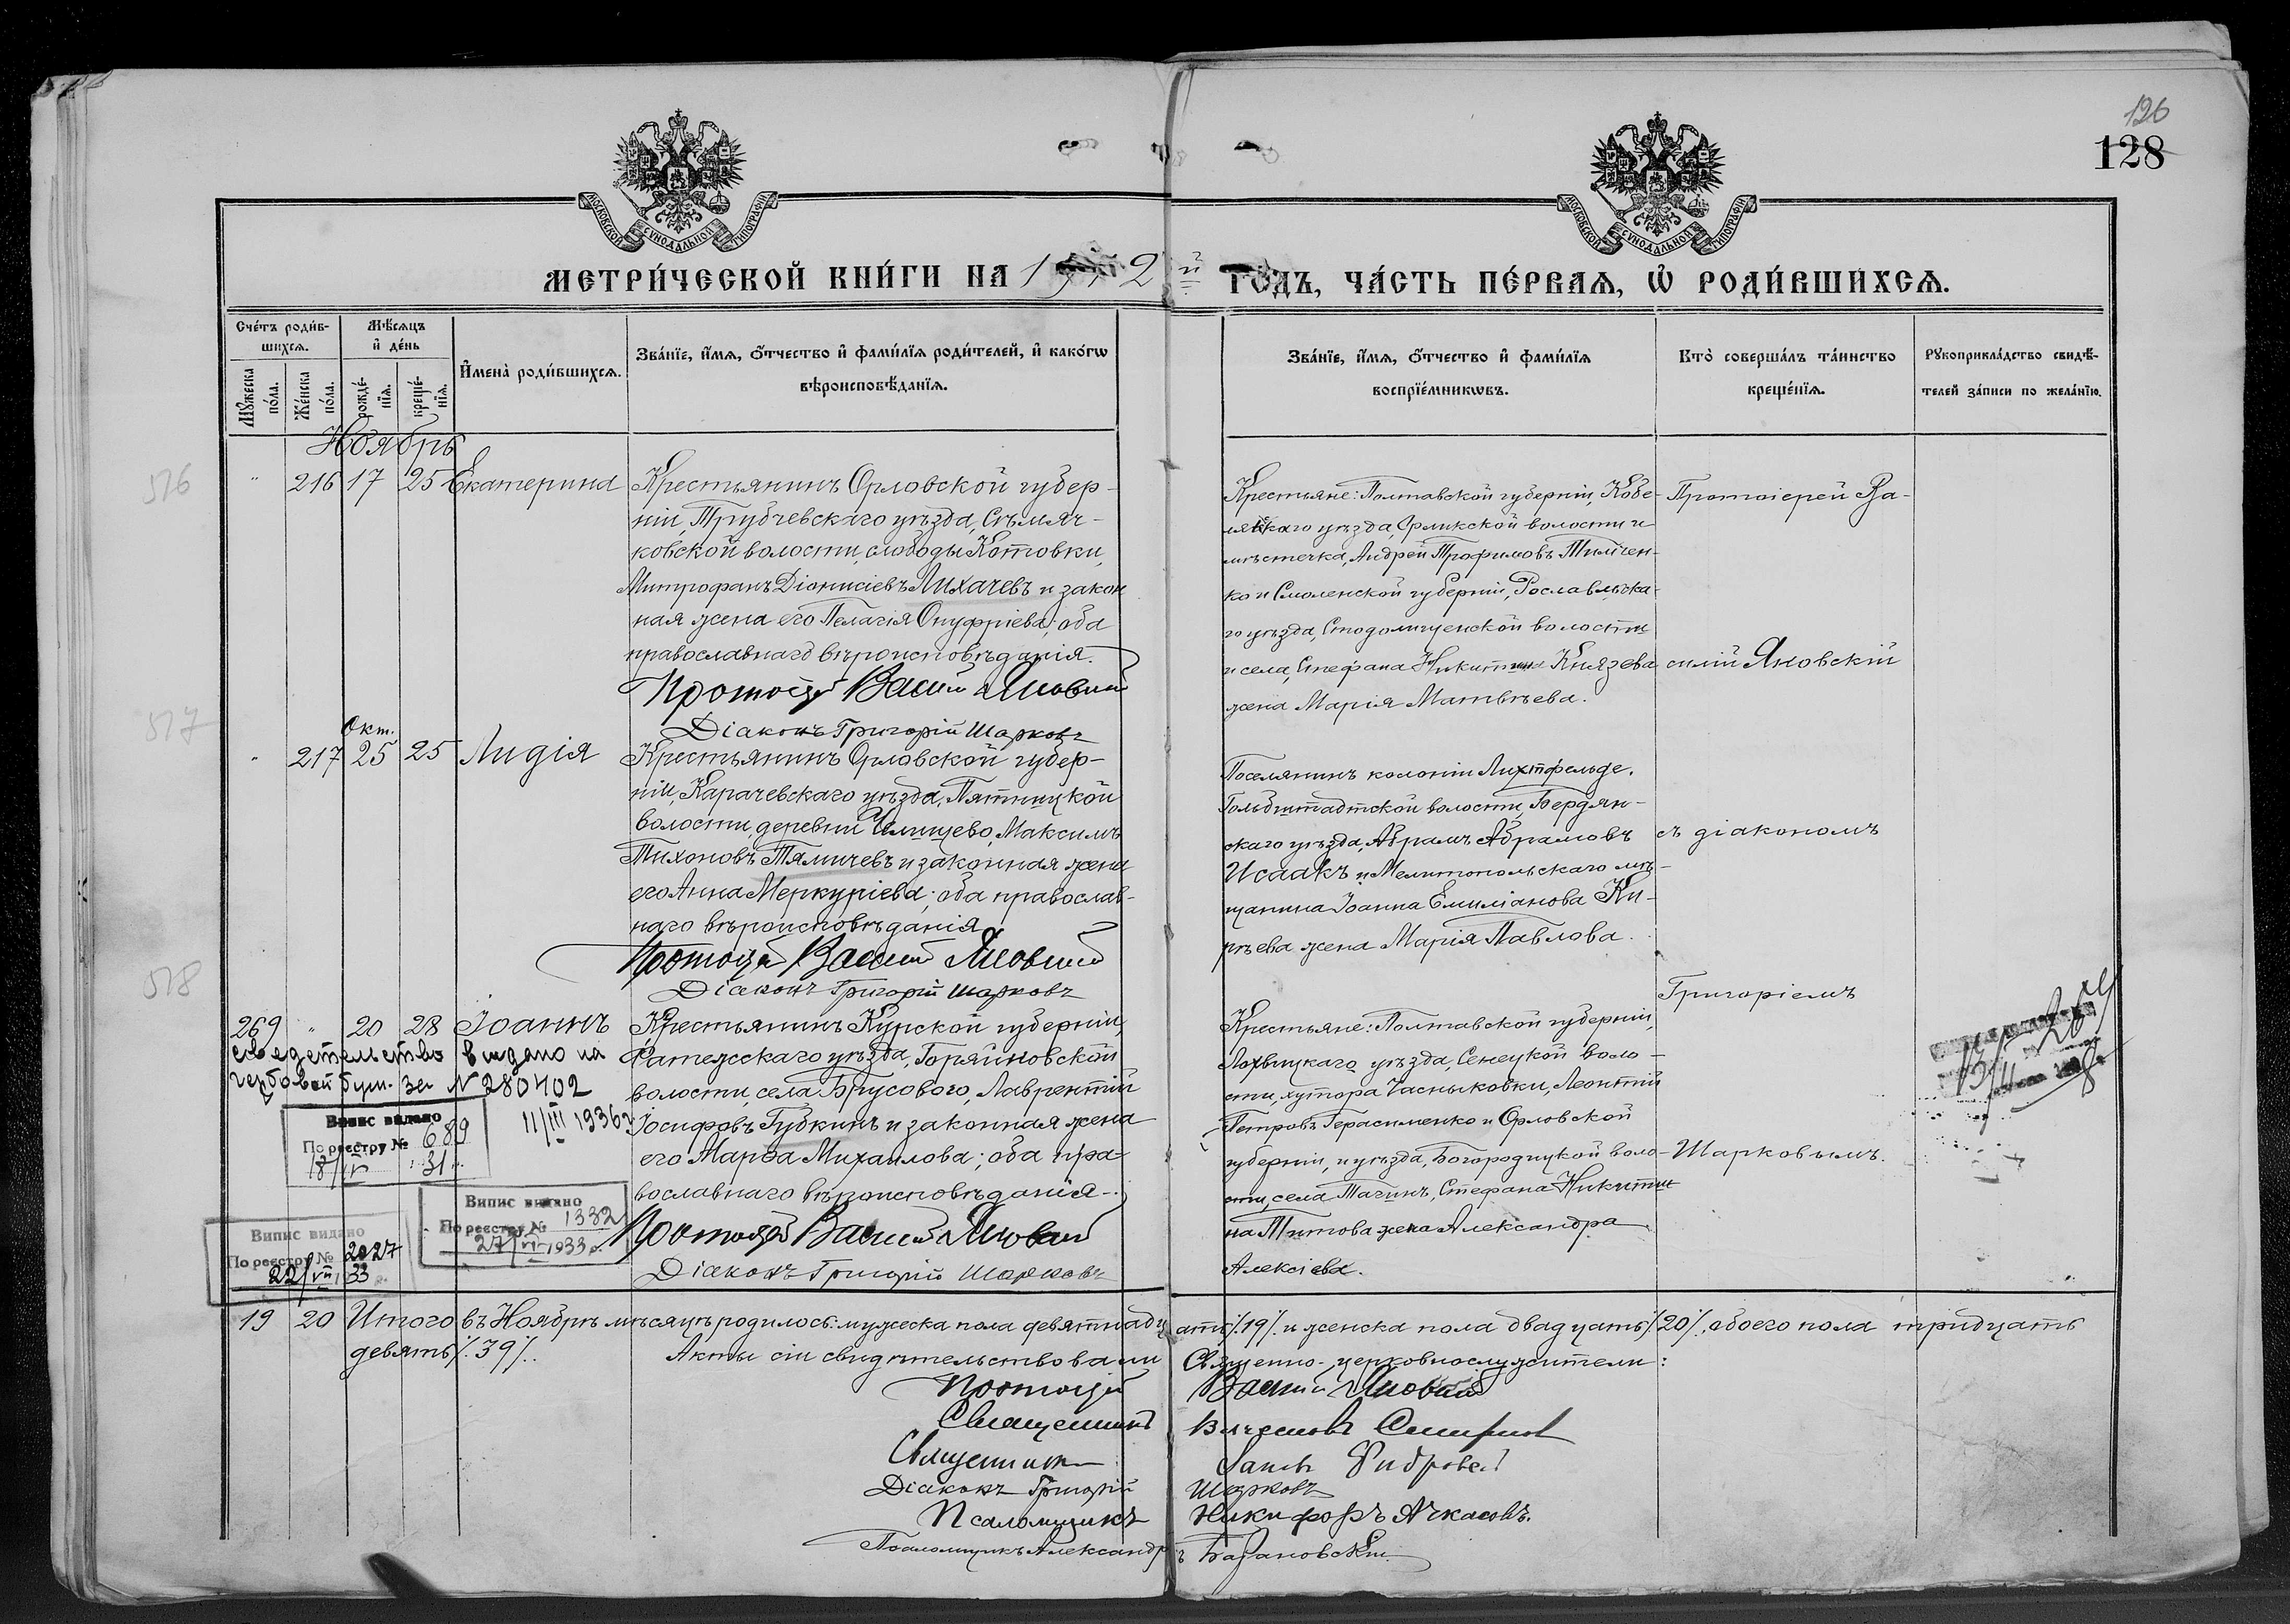 126
128
МОСКОВСКОЙ СѴНОДАЛЬНОЙ ТИПОГРАФІИ
МОСКОВСКОЙ СѴНОДАЛЬНОЙ ТИПОГРАФІИ
МЕТРИ́ЧЕСКОЙ КНИ́ГИ НА 1912 й ГОДЪ, ЧА́СТЬ ПЕ́РВАѦ, Ѡ҆ РОДИ́ВШИХСѦ.
Сче́тъ роди́в-
шихсѧ.
Мꙋ́жеска по́ла.
Же́нска по́ла.
Мѣ́сѧцъ
и҆ де́нь
рожде́-
нїѧ.
креще́-
нїѧ.
И҆мена̀ роди́вшихсѧ.
Зва́нїе, и҆́мѧ, ѻ҆́тчество и҆ фами́лїѧ роди́телей, и҆ како́гѡ
вѣроисповѣ́данїѧ.
Зва́нїе, и҆́мѧ, ѻ҆́тчество и҆ фами́лїѧ
воспрїе́мникѡвъ.
Кто̀ соверша́лъ та́инство
креще́нїѧ.
Рꙋкоприкла́дство свидѣ́-
телей за́писи по жела́нїю.
Ноябрь
516
" 216 17 25 Екатерина
Крестьянинъ Орловской губер-
ніи, Трубчевскаго уѣзда, Сѣмяч-
ковской волости, слободы Котовки,
Митрофанъ Діонисіевъ Лихачевъ и закон
ная жена его Пелагія Онуфріева; оба
православнаго вѣроисповѣданія.
Протоіерей Василій Яновскій
Діаконъ Григорій Шарковъ
Крестьяне: Полтавской губерніи, Кобе-
лякскаго уѣзда, Орликской волости и
мѣстечка, Андрей Трофимовъ Тимчен-
ко и Смоленской губерніи, Рославльска-
го уѣзда, Стодолищенской волости
и села, Стефана Никитина Князева
жена Марія Матвѣева.
Протоіерей Ва-
силій Яновскій
517
Окт.
" 217 25 25 Лидія
Крестьянинъ Орловской губер-
ніи, Карачевскаго уѣзда, Пятницкой
волости, деревни Илищево, Максимъ
Тихоновъ Тямичевъ и законная жена
его Анна Меркуріева; оба православ-
наго вѣроисповѣданія.
Протоіерей Василій Яновскій
Діаконъ Григорій Шарковъ
Поселянинъ колоніи Лихтфельде,
Гольбштадтской волости, Бердян-
скаго уѣзда, Абрамъ Абрамовъ
Исаакъ и Мелитопольскаго мѣ-
щанина Іоанна Емиліанова Ки-
рѣева жена Марія Павлова.
съ діакономъ
Григоріемъ
518
269 " 20 28 Іоаннъ
Крестьянинъ Курской губерніи,
Фатежскаго уѣзда, Горяйновской
волости, села Брусового, Лаврентій
Іосифовъ Губкинъ и законная жена
его Марѳа Михаилова; оба пра-
вославнаго вѣроисповѣданія.
Протоіерей Василій Яновскій
Діаконъ Григорій Шарковъ
Крестьяне: Полтавской губерніи,
Лохвицкаго уѣзда, Сенецкой воло-
сти, хутора Часныковки, Леонтій
Петровъ Герасименко и Орловской
губерніи, и уѣзда, Богородицкой воло-
сти, села Тагинъ, Стефана Никити
на Титова жена Александра
Алексіева.
Шарковымъ.
Сведетельство видано на
гербовой бум. за N 280402
11/III 1936г
Випис видано
По реєстру № 689
18/IV 31
Випис видано
По реєстру № 1332
27/VI 1933
Випис видано
По реєстру № 2027
22/VII 33
19 20 Итого въ Ноябрѣ мѣсяцѣ родилось: мужеска пола девятнадцать/.19/. и женска пола двадцать/.20/., обоего пола тридцать
девять/.39/.
Акты сіи свидѣтельствовали Священно-церковнослужители:
Протоіерей Василій Яновскій
Священникъ
Священникъ
Діаконъ Григорій Шарковъ
Псаломщикъ Никифоръ Ачкасовъ.
Псаломщикъ Александръ Барановскій